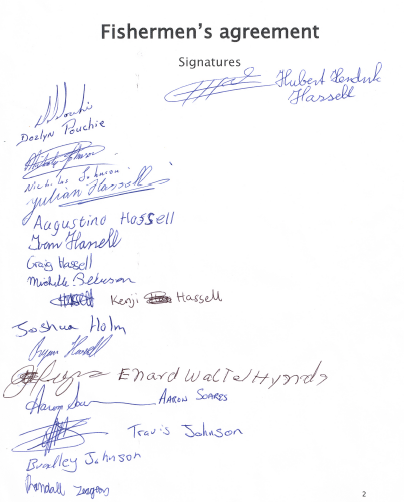 Fishermen's agreement
Signatures
Hubert Hendrik
Hassell
Dozlyn Pouchie
Nicholas Johnson
Julian Hassell
Augustino Hassell
Ivan Hassell
Craig Hassell
Michelle
Kenji Hassell
Joshua Holm
Hassell
Enard Walter Hynds
Aaron Soares
AARON SOARES
Travis Johnson
Bradley Johnson
Randall
2